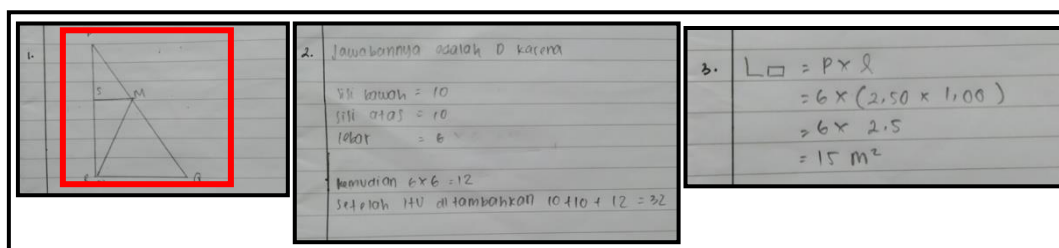 1.
S M
Q
2. Jawabannya adalah D karena
sisi bawah = 10
sisi atas = 10
lebar = 6
kemudian 6x6 = 12
setelah itu ditambahkan 10+10+ 12 = 32
3. L▭ = P x l
= 6 x (2,50 x 1,00)
= 6 x 2.5
= 15 m²